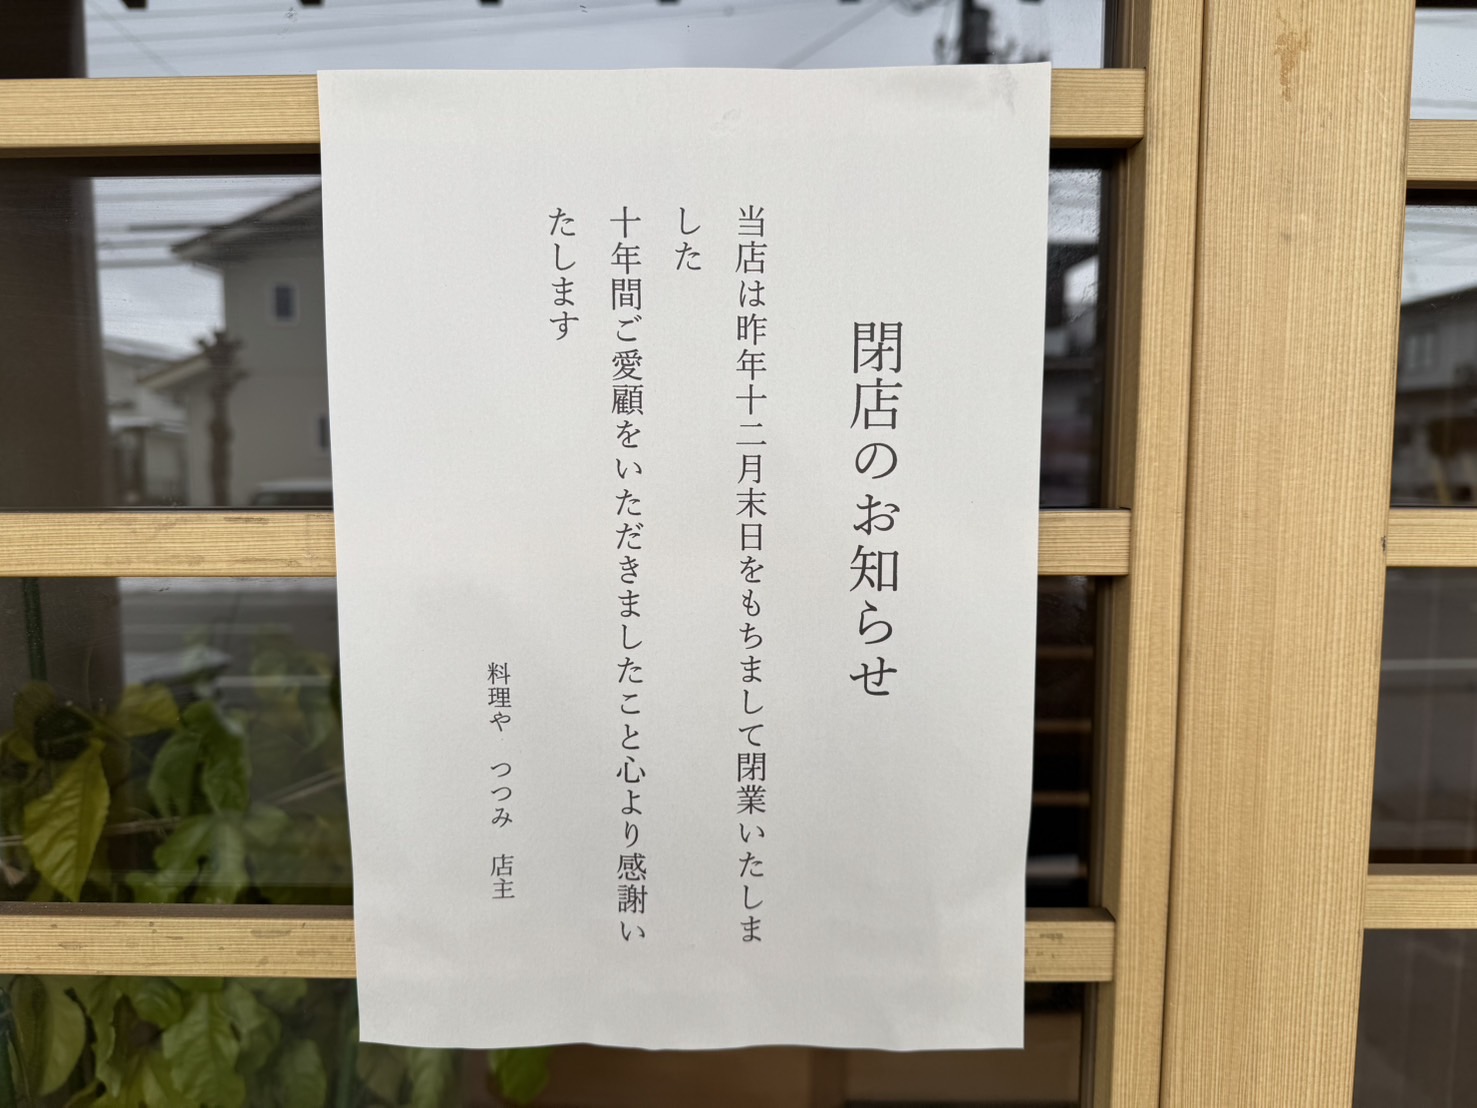 閉店のお知らせ
当店は昨年十二月末日をもちまして閉業いたしま
した
十年間ご愛顧をいただきましたこと心より感謝い
たします
料理や　つつみ　店主